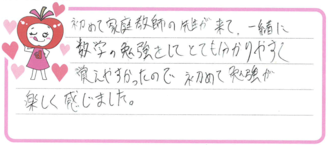 初めて家庭教師の先生が来て、一緒に
数学の勉強をしてとても分かりやすく
覚えやすかったので初めて勉強が
楽しく感じました。